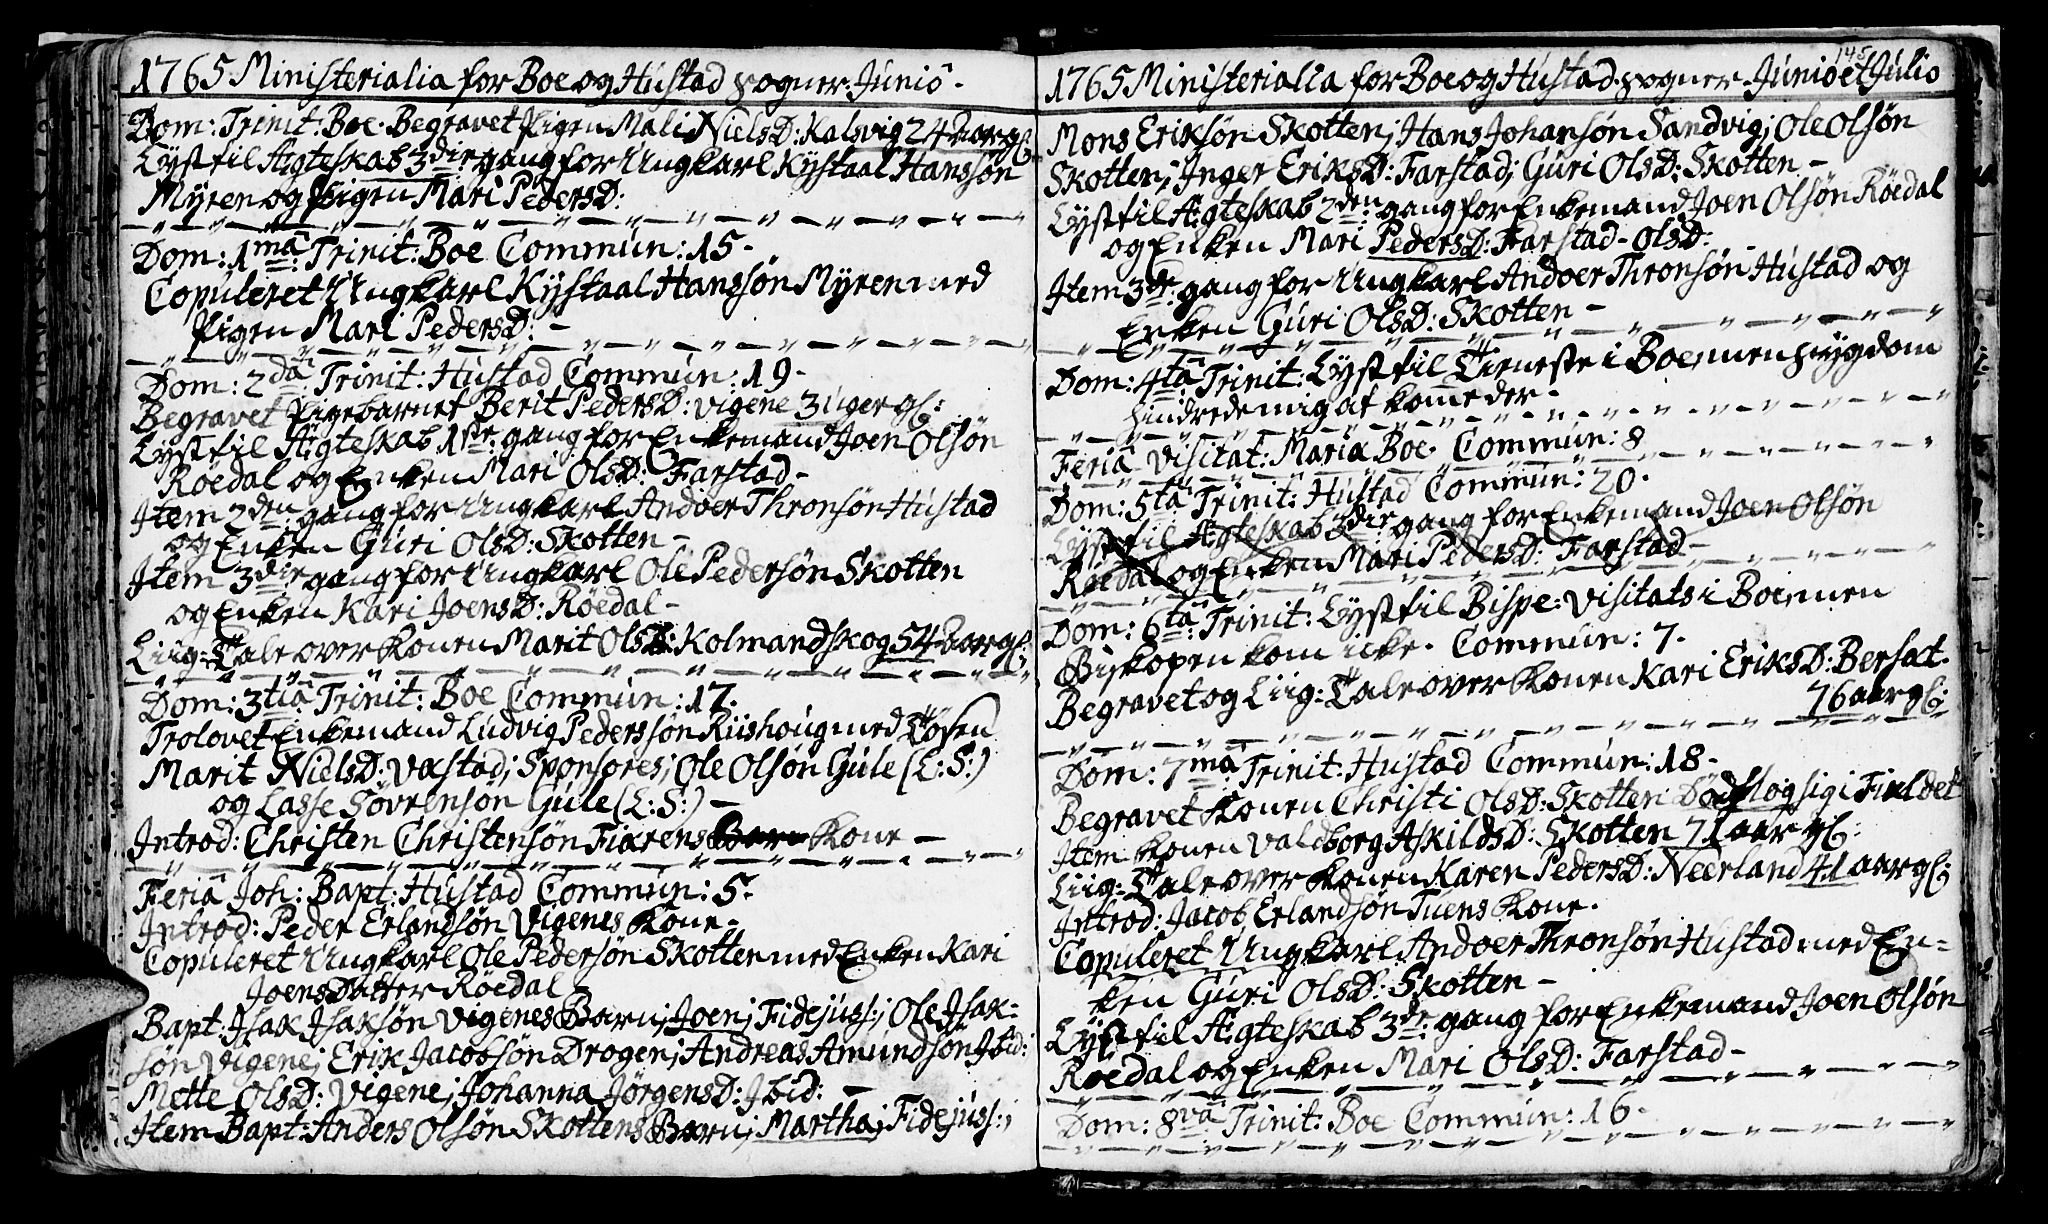 1765 Ministerialia for Boe og Hustad sogner. Junio.
Dom: Trinit: Boe. Begravet Pigen Mali NielsD: Kalsvig 24 aar gl:
Lyst til Ægteskab 3die gang for Ungkarl Kÿstaal Hanssøn
Mÿren og Pigen Mari PedersD:
Dom: 1ma Trinit: Boe Commun: 15-
Copuleret Ungkarl Kÿstaal Hanssøn Mÿren med
Pigen Mari PedersD: -
Dom: 2da Trinit: Hustad Commun: 19-
Begravet Pigebarnet Berit PedersD: Vigene 3 uger gl:
Lyst til Ægteskab 1ste gang for Enkemand Joen Olsøn
Röedal og Enken Mari OlsD: Farstad-
Item 2den gang for Ungkarl Andoer Thronsøn Hustad
og Enken Guri OlsD: Skotten-
Item 3die gang for Ungkarl Ole Pedersøn Skotten
og Enken Kari JoensD: Röedal-
Liig-Tale over Konen Marit OlsD: Kolmandskog 54 aar gl:
Dom: 3tia Trinit: Boe Commun: 17.
Trolovet Enkemand Ludvig Pederssøn Riishoug med Tösen
Marit NielsD: Vastad; Sponsores; Ole Olsøn Gule (L:S:)
og Lasse Sövrensøn Gule (L:S:) -
Introd: Christen Christensøn Fiærens Barn Kone -
Feria Joh: Bapt: Hustad Commun: 5.
Introd: Peder Erlandsøn Vigenes Kone-
Copuleret Ungkarl Ole Pedersøn Skotten med Enken Kari
Joens Datter Röedal
Bapt: Isak Isaksøn Vigenes Barn; Joen; Fidejuss:; Ole Isak-
søn Vigene; Erik Jacobsøn Drogen; Andreas Amundsøn Ibid:
Mette OlsD: Vigene; Johanna JörgensD: Ibid: -
Item Bapt: Anders Olsøn Skottens Barn; Martha; Fidejuss:;
145
1765 Ministerialia for Boe og Hustad sogner. Junio et Julio
Mons Eriksøn Skotten; Hans Johansøn Sandvig; Ole Olsøn
Skotten; Inger EriksD: Farstad; Guri OlsD: Skotten-
Lyst til Ægteskab 2den gang for Enkemand Joen Olsøn Röedal
og Enken Mari PedersD: Farstad- OlsD:
Item 3die gang for Ungkarl Andoer Thronsøn Hustad og
Enken Guri OlsD: Skotten-
Dom: 4ta Trinit: Lyst til Tieneste i Boe, men sygdom
hindrede mig at komme der-
Feria Visitat: Maria Boe. Commun: 8
Dom: 5ta Trinit: Hustad Commun: 20.
Lyst til Ægteskab 3die gang for Enkemand Joen Olsøn
Röedal og Enken Mari PedersD: Farstad-
Dom: 6ta Trinit: Lyst til Bispe-Visitats i Boe, men
Biskopen kom icke. Commun: 7.
Begravet og Liig-Tale over Konen Kari EriksD: Bersæt.
76 aar gl:
Dom: 7ma Trinit: Hustad Commun: 18-
Begravet Konen Christi OlsD: Skotten Död slog sig i Fieldet
Item Konen Valdborg AskildsD: Skotten 71 aar gl:
Liig-Tale over Konen Karen PedersD: Neerland 41 aar gl:
Introd: Jacob Erlandsøn Tuens Kone.
Copuleret Ungkarl Andoer Thronsøn Hustad med En-
ken Guri OlsD: Skotten-
Lyst til Ægteskab 3de gang for Enkemand Joen Olsøn
Röedal og Enken Mari OlsD: Farstad-
Dom: 8va Trinit: Boe Commun: 16-